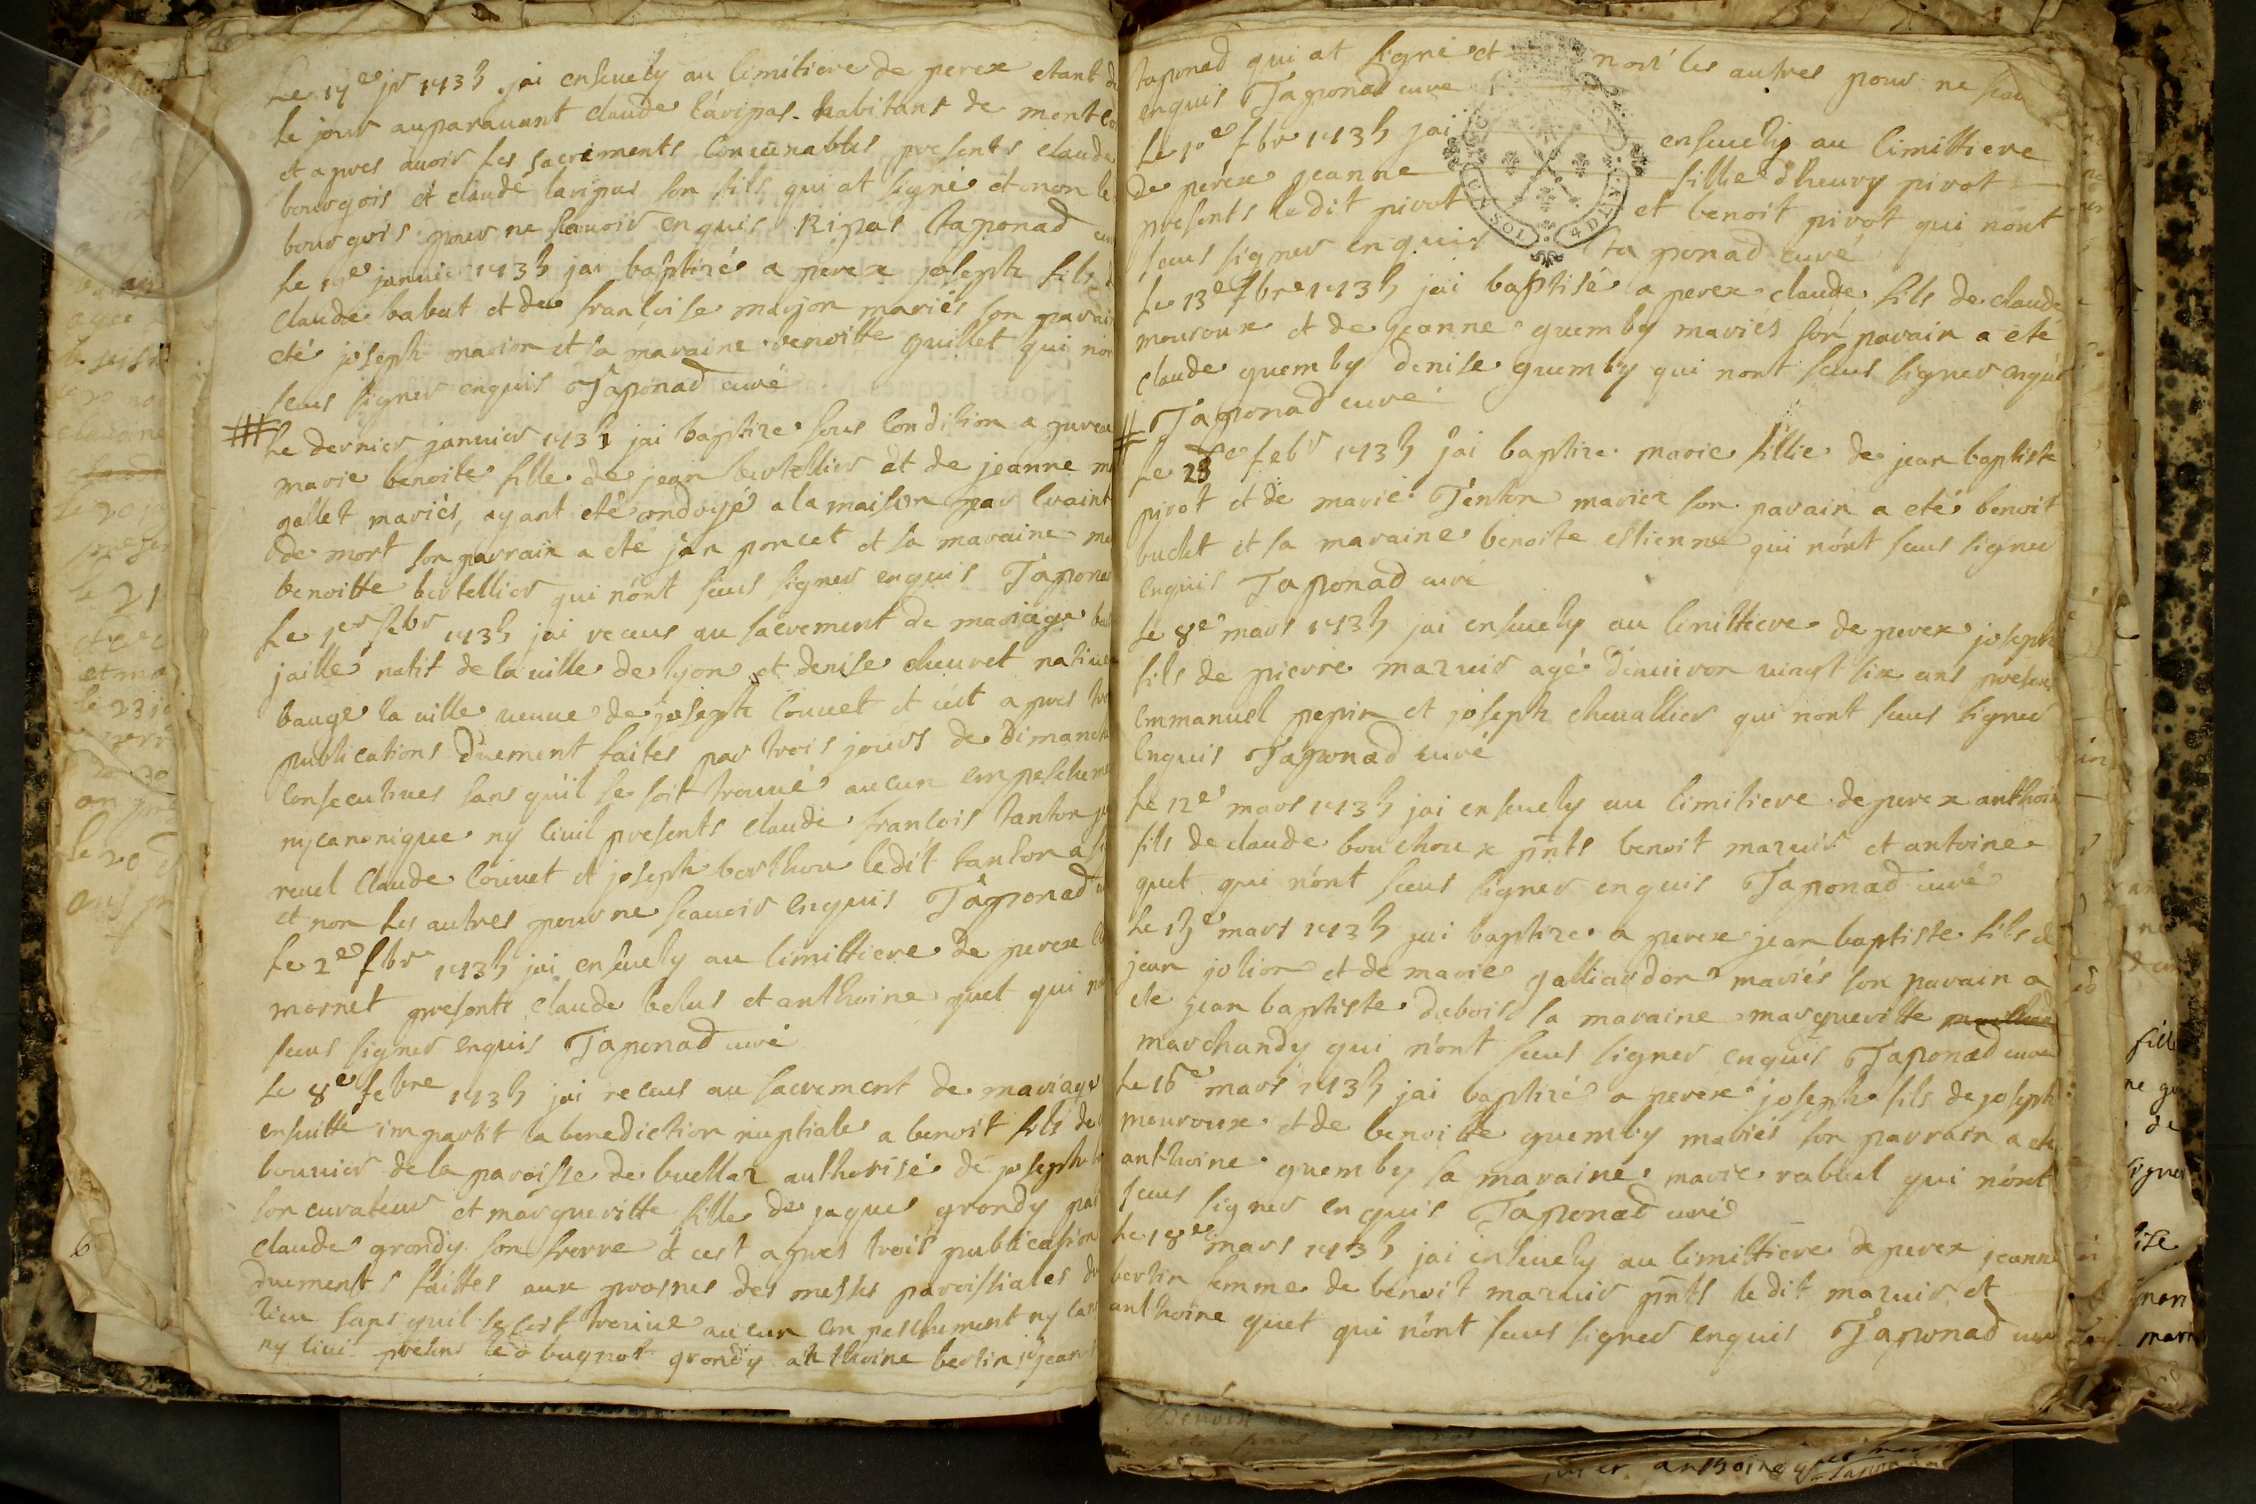 Le 17e jr 1735 jai ensevely au cimitiere de perex etant
le jour auparavant claude laripas habitant de
et apres avoir les sacrements convenables presents claude
bourgois et claude laripas son fils qui at signé et non le
bourgois pour ne scavoir enquis Ripas taponad
Le janvier 1735 jai baptizés a perex joseph fils
claude babut et de françoise marion mariés son parain
eté joseph marion et sa maraine benoitte guillet qui nont
sceus signer enquis Taponad curé
Le dernier janvier 1735 jai baptize sous condition a perex
marie benoite fille de jean bertellier et de jeanne
gallet mariés, ayant eté ondoyé a la maison par crainte
de mort son parrain a eté jan poncet et sa maraine
benoitte bertellier qui nont sceus signer enquis Taponad
Le 1er febr 1735 jai receus au sacrement de mariage
jaille natif de la ville de lyon et denise chevret native
bauge la ville veuve de joseph couvet et cet apres
publications duement faites par trois jours de Dimanche
consecutives sans quil se soit trouvé aucun empeschement
ny canonique ny civil presents claude francois tanton
revel claude couvet et joseph berthou ledit tanton a
et non les autres pour ne scavoir enquis Taponad
Le 2e fbre 1735 jai ensevely au cimittiere de perex
mornet presents claude belus et anthoine guet qui
sceus signer enquis Taponad curé
Le 8e febre 1735 jai receus au sacrement de mariage
ensuitte impartit la benediction nuptiale a benoit fils de
bouvier de la paroisse de buellaz authorisé de joseph
son curateur et margueritte fille de jaques grondy par
claude grondy son frerre et cest apres trois publications
duements faittes aux prosnes des messes paroissiales du
lieu sans quil se soit trouvé aucun empeschement ny
ny civi bugnot grondy anthoine bertin jean
taponad qui at signé et non les autres pour ne
enquis Taponad curé
Le 10e fbre 1735 jai ensevely au cimittiere
de perex jeanne fillie dheury pivot
presents ledit pivot et benoit pivot qui nont
sceus signer enquis taponad curé
Le 13e fbre 1735 jai baptisé a perex claude fils de claude
mouroux et de jeanne guemby mariés son parain a eté
claude guemby denise guemby qui nont sceus signer enquis
Taponad curé
Le 23e febr 1735 jai baptize marie fillie de jean baptiste
pivot et de marie Tenton mariez son parain a eté benoit
buchet et sa maraine benoite estienne qui nont sceus signer
enquis Taponad curé
Le 8e mars 1735 jai ensevely au cimittiere de perex joseph
fils de pierre mazuir agé denviron vingt six ans presens
emmanuel pepin et joseph chevallier qui nont sceus signer
enquis Taponad curé
Le 12e mars 1735 jai ensevely au cimitiere de perex anthoine
fils de claude bouchoux pnts benoit mazuir et antoine
guet qui nont sceus signer enquis Taponad curé
Le 15e mars 1735 jai baptize a perex jean baptiste fils de
jean jolion et de marie galliardon mariés son parain a
eté jean baptiste dubois sa maraine margueritte
marchandy qui nont sceus signer enquis Taponad curé
Le 16e mars 1735 jai baptizé a perex joseph fils de joseph
mouroux et de benoitte guemby mariés son parrain a eté
anthoine guemby sa maraine marie rabuel qui nont
sceus signer enquis Taponad curé
Le 18e mars 1735 jai ensevely au cimittiere de perex jeanne
bertin femme de benoit mazuir pnts ledit mazuir et
anthoine guet qui nont sceus signer enquis Taponad curé